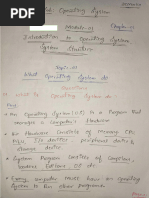 Sub: Operating System
Module-01 Chapter-1
Introduction to Operating System,
System Structure
Topic-01
What Operating System do
What is operating System do:
An Operating System (OS) is a Program that
manages a Computer's Hardware
Hardware Consists of Memory, CPU,
I/O devices, peripheral devices &
storage devices.
System Program Consists of Compilers,
loaders, editors, OS etc.
Every computer must have an operating
System to run other programs.